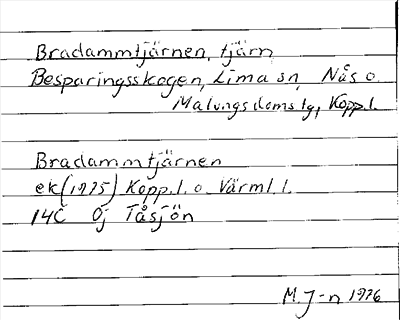 Bradammtjärnen, tjärn
Besparingsskogen, Lima sn, Nås o.
Malungs domsg, Kopp.l.
Bradammtjärnen
ek (1975) Kopp.l. o. Värml.l.
14C Öj Tåsjön
M. J-n 1976